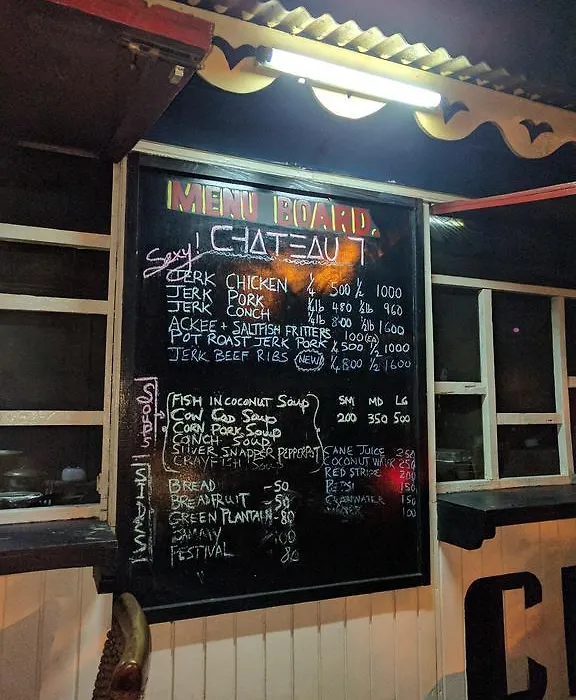 MENU BOARD.
Sexy! CHATEAU 7
JERK CHICKEN 1/4 500 1/2 1000
JERK PORK 1/4lb 480 1/2lb 960
JERK CONCH 1/4lb 800 1/2lb 1600
ACKEE + SALTFISH FRITTERS 100(EA)
POT ROAST JERK PORK 1/4 500 1/2 1000
JERK BEEF RIBS NEW! 1/4 800 1/2 1600
SM MD LG
FISH IN COCONUT Soup
COW COD Soup 200 350 500
CORN PORK Soup
CONCH SOUP
SILVER SNAPPER PEPPERPOT
CRAYFISH Soup
CANE JUICE 250
COCONUT WATER 250
RED STRIPE 200
PEPSI 150
CRANWATER 150
100
BREAD -50
BREADFRUIT -50
GREEN PLANTAIN -80
BAMMY 100
FESTIVAL 80
C